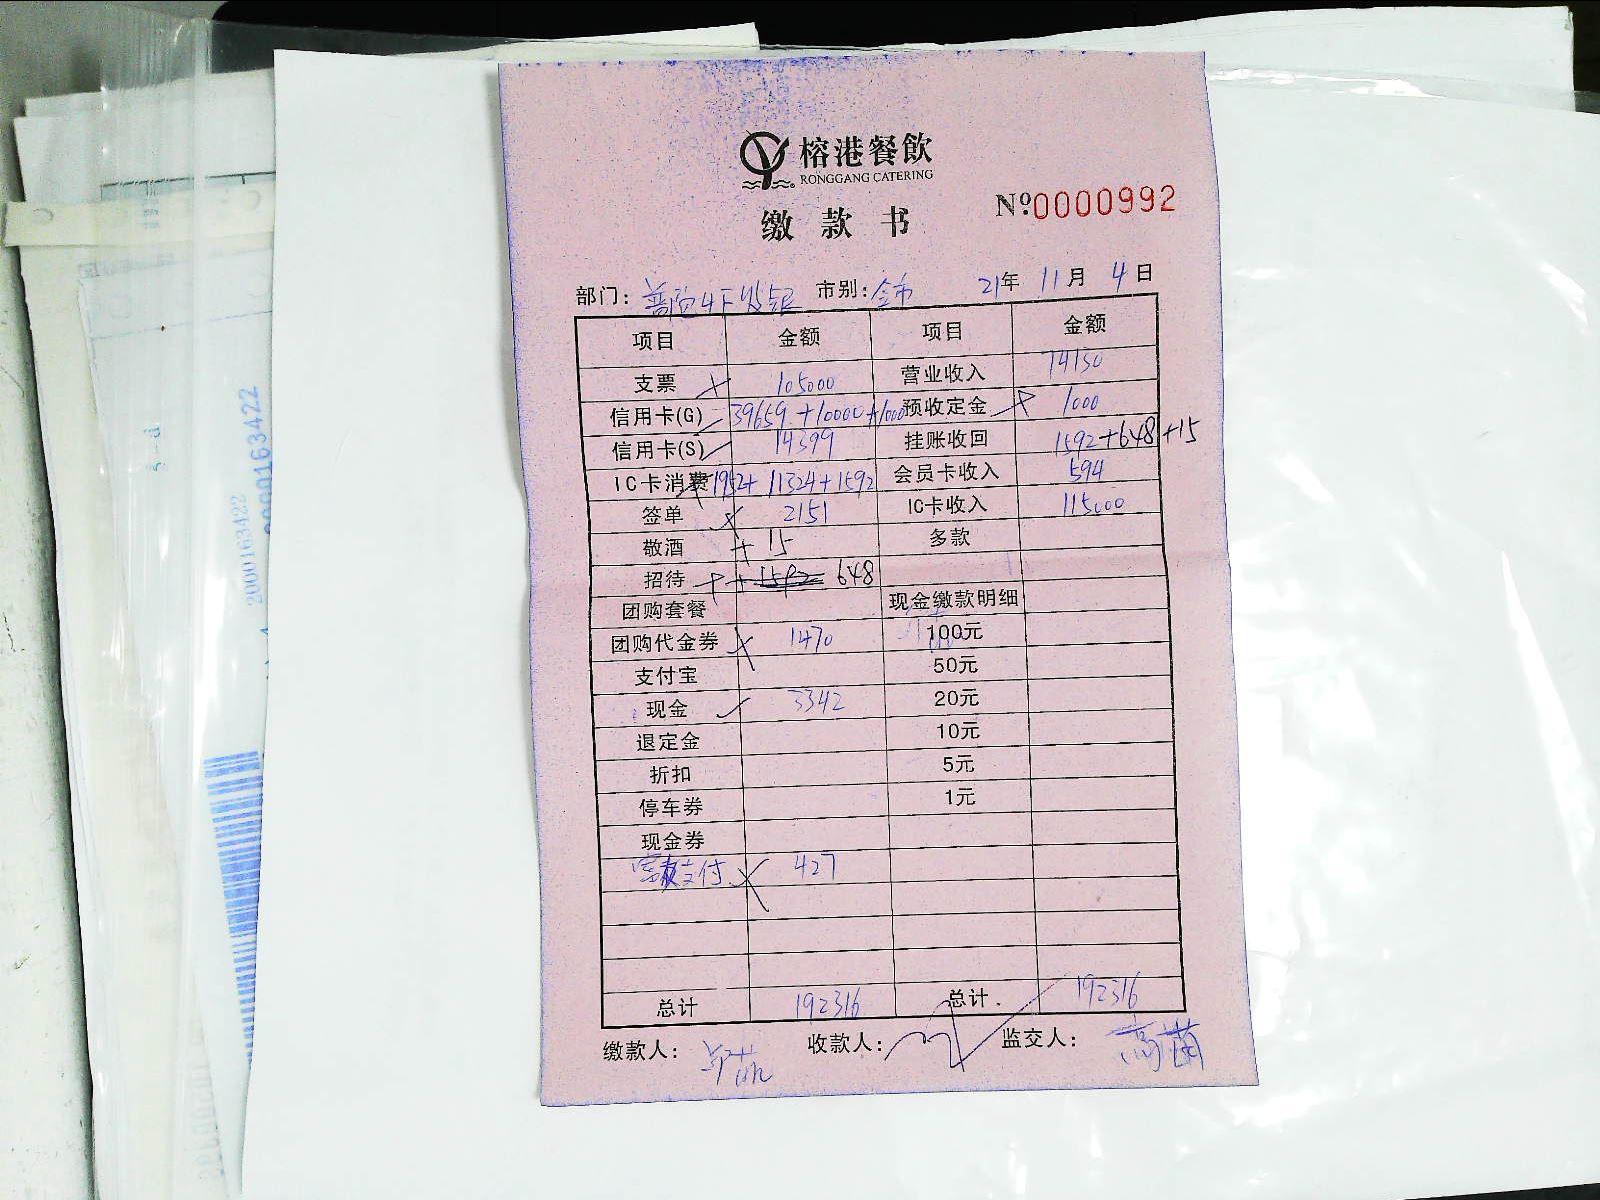 榕港餐飲
RONGGANG CATERING
缴款书
Nº:0000992
部门: 市别:全市 21年 11月 4日
项目 金额 项目 金额
支票 105000 营业收入
信用卡(G) 39659+10000+1000 预收定金 1000
信用卡(S) 14399 挂账收回 1592+648+15
IC卡消费 1952+11324+1592 会员卡收入 594
签单 2151 IC卡收入 115000
敬酒 +15 多款
招待 +1592 648
团购套餐 现金缴款明细
团购代金券 1470 100元
支付宝 50元
现金 3342 20元
退定金 10元
折扣 5元
停车券 1元
现金券
支付 427
总计 192316 总计 192316
缴款人: 收款人: 监交人: 高菌
2000163422
2000163422